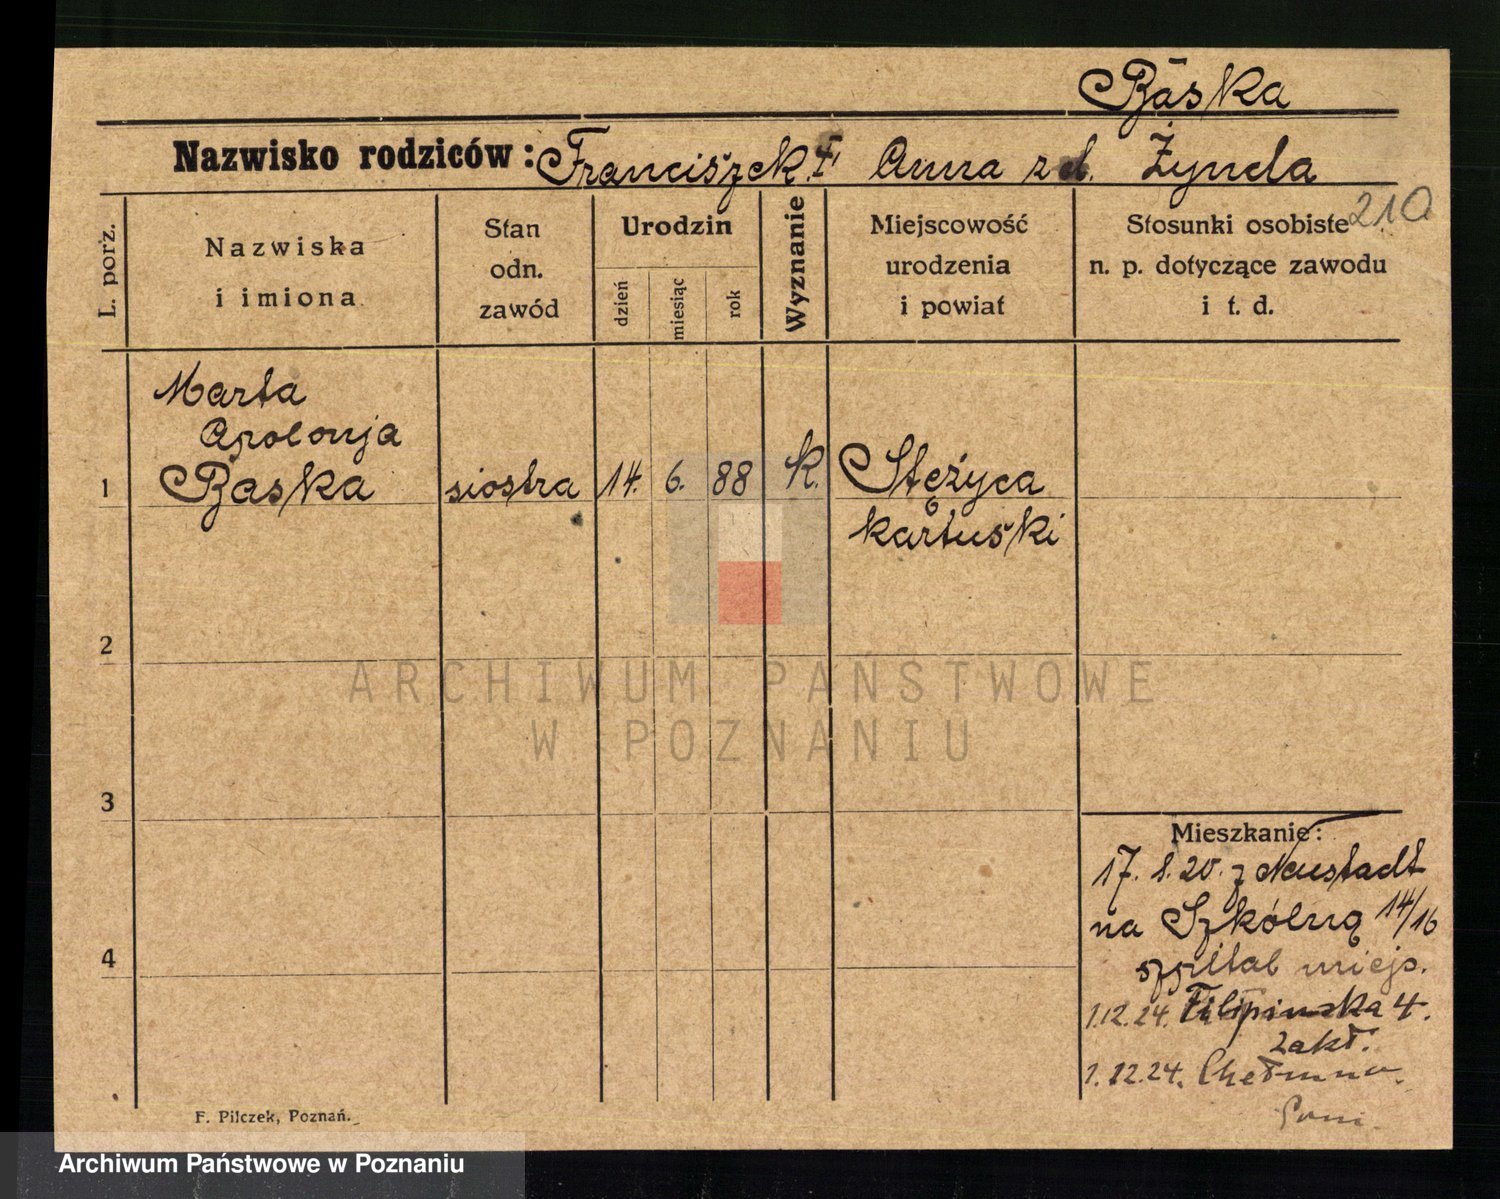 Bāska
Nazwisko rodziców: Franciszek. Anna zd. Żynda
210
L. porz.
Nazwiska
i imiona
Stan
odn.
zawód
Urodzin
dzień
miesiąc
rok
Wyznanie
Miejscowość
urodzenia
i powiat
Stosunki osobiste
n. p. dotyczące zawodu
i t. d.
Marta
Apolonja
1 Baska siostra 14. 6. 88 k. Stężyca
kartuski
2
ARCHIWUM PAŃSTWOWE
W POZNANIU
3
4
Mieszkanie:
17. 8. 20. z Neustadt
na Szkólną 14/16
szpital miejs.
1.12.24. Filipinska 4.
zakł.
1.12.24. Chełmno.
Pom.
F. Pilczek, Poznań.
Archiwum Państwowe w Poznaniu